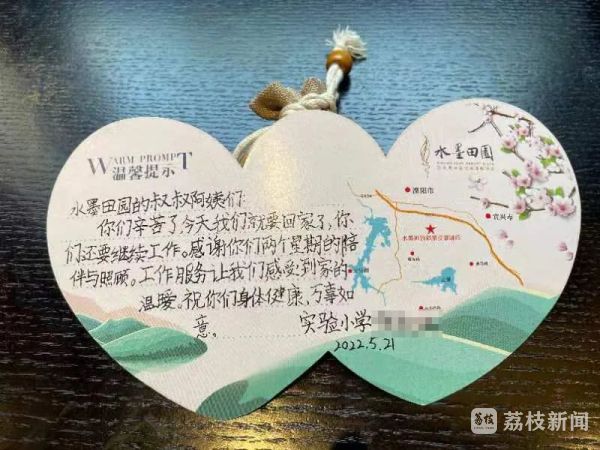 WARM PROMPT
温馨提示
水墨田园的叔叔阿姨们:
你们辛苦了今天我们就要回家了,你
们还要继续工作。感谢你们两个星期的陪
伴与照顾。工作服务让我们感受到家的
温暖。祝你们身体健康,万事如
意。
实验小学
2022.5.21
水墨田園
溧阳市
宜兴市
荔枝
荔枝新闻